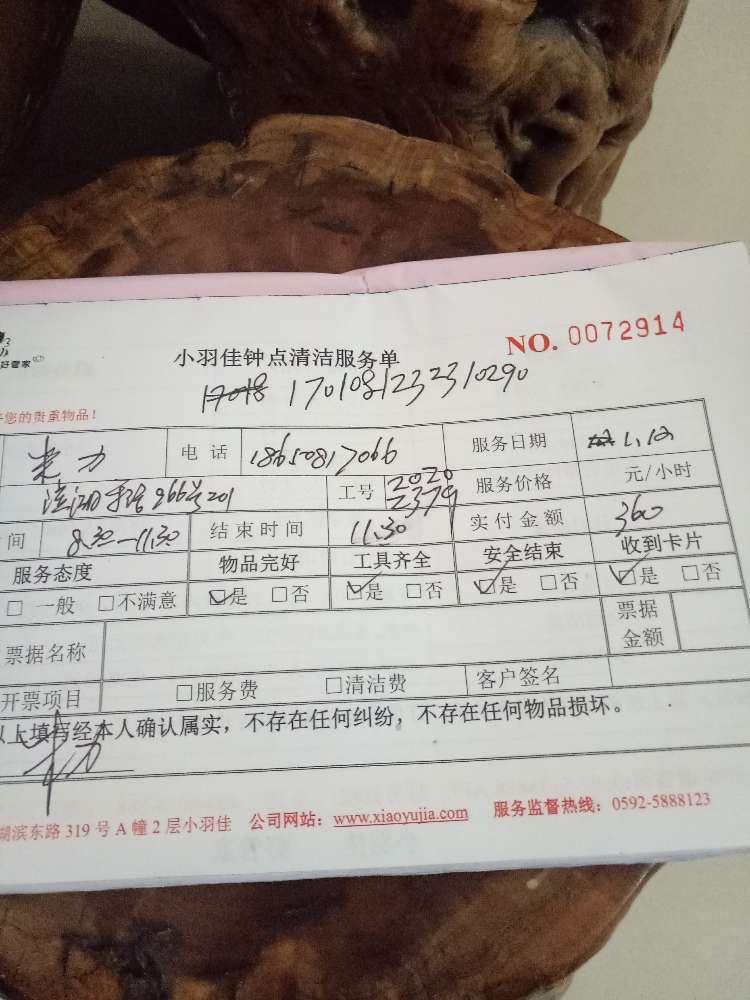 好管家
小羽佳钟点清洁服务单
NO. 0072914
1701081232310290
您的贵重物品！
力 电话 18650817066 服务日期 1.12
266号201 工号 2020 2379 服务价格 元/小时
间 8.30—11.30 结束时间 11.30 实付金额 360
服务态度 物品完好 工具齐全 安全结束 收到卡片
□一般 □不满意 ☑是 □否 ☑是 □否 ☑是 □否 ☑是 □否
票据名称 票据金额
开票项目 □服务费 □清洁费 客户签名
以上填写经本人确认属实，不存在任何纠纷，不存在任何物品损坏。
湖滨东路319号A幢2层小羽佳 公司网站：www.xiaoyujia.com 服务监督热线：0592-5888123